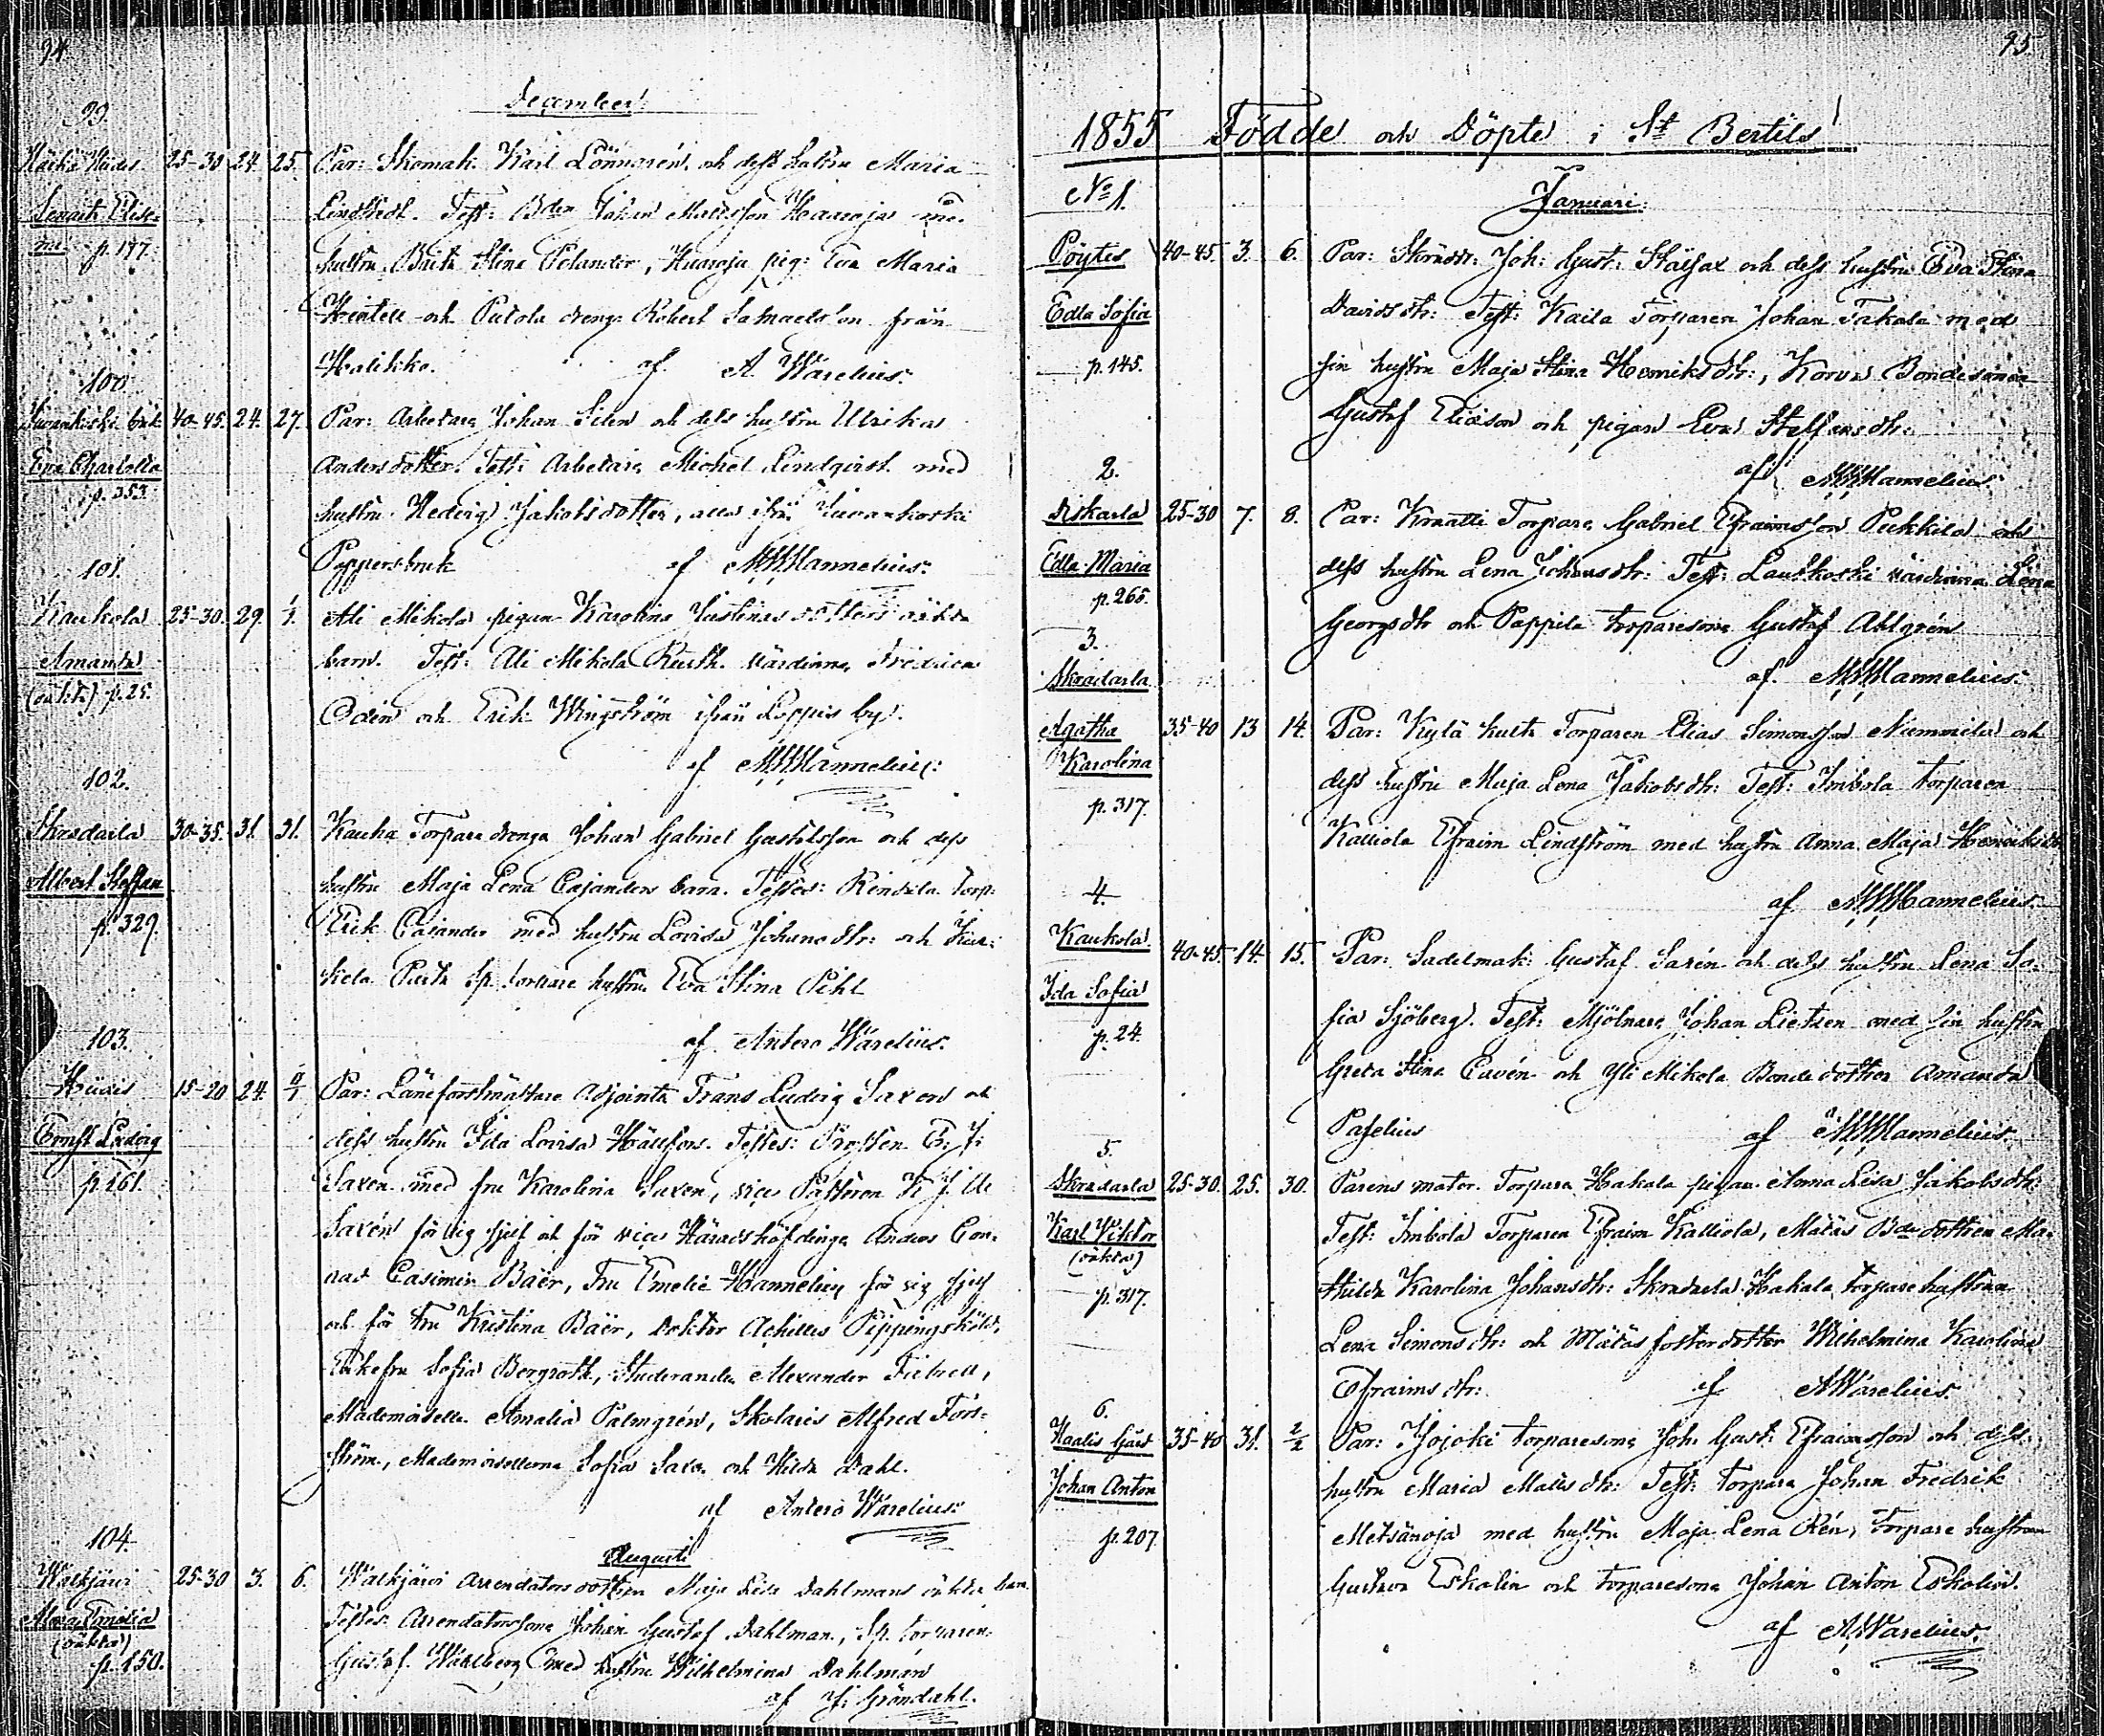 94.
December
99.
25-30 24. 25. Par: Skomak. Karl Lönngrén och dess hustru Maria
Lindstedt. Test: Bdn Johan Mattsson Haaroja med
p. 177.
hustru Brita Stina Pelander, Haaroja pig: Eva Maria
och Putola dreng Robert Samuelsson från
Halikko. af A. Warelius.
100.
Juvankoski bruk 40-45. 24. 27. Par: Arbetare Johan Silen och dess hustru Ulrika
Eva Charlotta
p. 353.
Andersdotter. Test: Arbetare Michel Lindqvist med
hustru Hedvig Jakobsdotter, alla ifrån Juvankoski
Pappersbruk af Hannelius.
101.
Kaukola 25-30. 29. 1/1. Ali Mikola pigan Karolina Justinasdotters oäkta
Amanda
(oäkta) p. 25.
barn. Test: Ali Mikola Rusth. värdinna Fredrica
Odén och Erik Wingström ifrån Loppis by.
af Hannelius.
102.
Skradarla 30-35. 31. 31. Kauha Torpare drenge Johan Gabriel Gustafsson och dess
Albert Steffan
p. 329.
hustru Maja Lena Cajanders barn. Testes: Rindala Torp.
Erik Cajander med hustru Lovisa Johansdtr: och Kur-
kela Rusth. Sp. torpare hustru Eva Stina Pihl
af Antero Warelius.
103.
Hiisis 15-20 24. Par: Länsforstmästare Adjointe Frans Ludvig Saxen och
Ernst Ludvig
p. 161.
dess hustru Ida Lovisa Hällfors. Testes: Prosten
Saxen med fru Karolina Saxen, vice Pastoren K. J. U.
Saxén för sig sjelf och för vice Häradshöfdinge Anders Con-
rad Casimir Bäer, Fru Emelie Hannelius för sig sjelf
och för Fru Kristina Bäer, Doktor Achilles Pippingsköld,
Enkefru Sofia Bergroth, Studerande Alexander
Mademoiselle Amalia Palmgrén, Skolaris Alfred Fors-
ström, Mademoisellerna Sofia Saxen och Hilda Dahl.
af Antero Warelius.
104.
Augusti
Walkjärvi 25-30 3. 6. Walkjärvi Arrendators dotter Maja Lisa Dahlmans oäkta barn.
Emelia
(oäkta)
p. 150.
Testes: Arrendatorssone Johan Gustaf Dahlman, Sp. torparen
Gustaf Wahlberg med hustru Wilhelmina Dahlman
af Gröndahl.
95.
1855 Födde och Döpte i St Bertils
No 1.
Januari.
Pöytes 40-45. 3. 6. Par: Skrädd: Joh: Gust: och dess hustru Eva Stina
Edla Sofia
p. 145.
Davidsdtr: Test: Kaila Torparen Johan Takala med
sin hustru Maja Stina Henriksdtr:, Korvu Bondesonen
Gustaf Eliasson och pigan Eva Staffansdtr:
af Hannelius.
2.
Diskarla 25-30 7. 8. Par: Kraatti Torpare Gabriel Efraimsson Pukkila och
Edla Maria
p. 265.
dess hustru Lena Johansdtr: Test: Laukkoski värdinna Lena
Georgsdtr och Pappila torparesone Gustaf Ahlgrén
af Hannelius.
3.
Skradarla
Agatha 35-40 13 14. Par: Kylä Kulta Torparen Elias Simonsson Nummila och
Karolina
p. 317.
dess hustru Maja Lena Jakobsdtr: Test: Imbola torparen
Kalliola Efraim Lindström med hustru Anna Maja Henriksdtr
af Hannelius.
4.
Kaukola 40-45. 14. 15. Par: Sadelmak: Gustaf Sarén och dess hustru Lena So-
Ida Sofia
p. 24.
fia Sjöberg. Test: Mjölnare Johan Lietzen med sin hustru
Greta Stina Euvén och Yli Mikola Bonde dotter Amanda
Paselius af Hannelius.
5.
Skradarla 25-30. 25. 30. Parens mater. Torpare Hakala pigan Anna Lisa Jakobsdtr:
Karl Viktor
(oäkta)
p. 317.
Test: Imbola Torparen Efraim Kalliola, Mätäs Bde dottren Ma-
thilda Karolina Johansdtr: Skradarla Hakala torpare hustrun
Lena Simonsdtr: och Mätäs fosterdotter Wilhelmina Karolina
Efraimsdtr: af A Warelius.
6.
Haalis Gård 35-40 31. 2/2 Par: Jojoki torparesone Joh. Gust: Efraimsson och dess
Johan Anton
p. 207.
hustru Maria Mattsdtr: Test: torpare Johan Fredrik
Metsänoja med hustru Maja Lena Rén, torpare hustrun
Gustava Eskolin och torparesone Johan Anton Eskolin.
af A. Warelius.